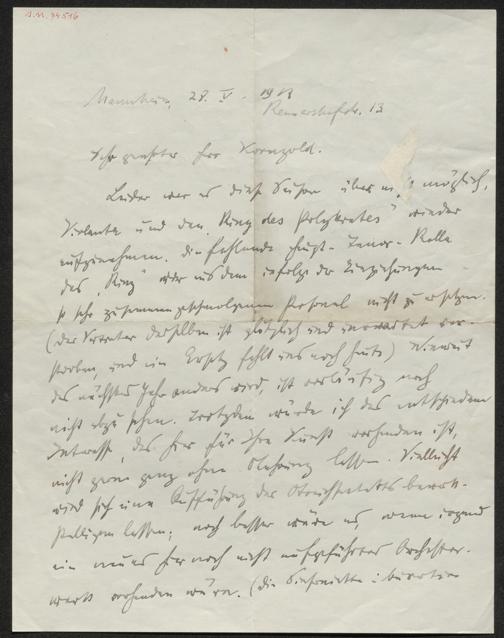 Mannheim, 28. V. 1918
Rennershofstr. 13
Sehr geehrter Herr Korngold.
Leider war es diese Saison über nicht möglich,
Violanta und den „Ring des Polykrates" wieder
aufzunehmen. Die fehlende Haupt-Tenor-Rolle
des „Ring" war aus dem infolge der Einziehungen
so sehr zusammengeschmolzenen Personal nicht zu ersetzen.
(Der Vertreter derselben ist plötzlich und unerwartet ver-
storben und ein Ersatz fehlt uns noch heute) Wieweit
das nächstes Jahr anders wird, ist vorläufig noch
nicht abzusehen. Trotzdem würde ich das entschiedene
Interesse, das hier für Ihre Kunst vorhanden ist,
nicht gerne ganz ohne Nahrung lassen. Vielleicht
wird sich eine Aufführung des Streichsextetts bewerk-
stelligen lassen; noch besser wäre es, wenn irgend
ein neues hier noch nicht aufgeführtes Orchester-
werk vorhanden wäre. (Die Sinfonietta